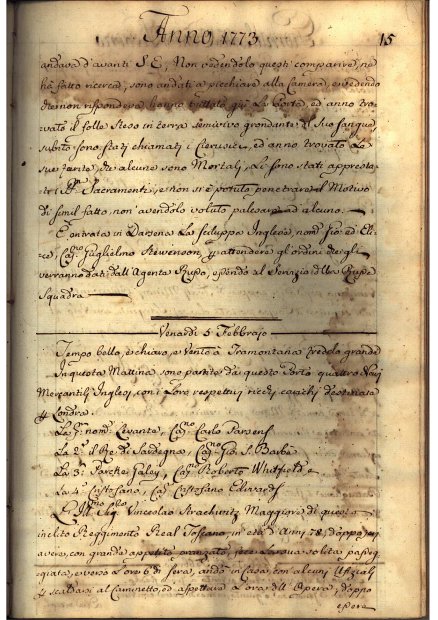 Anno 1773 15
andava d'avanti S.E, Non vedendolo questi comparire, ne
hà fatto ricerca, sono andati a picchiare alla Camera, e vedendo
che non rispondeva hanno buttato giù La Porta, ed anno tro
vato il folle steso in terra semivivo grondante il suo sangue
subito sono stati chiamati i Cerusici, ed anno trovato Le
sue ferite, che alcune sono Mortali, Li sono stati appresta
ti i Sacramenti, e non si è potuto penetrare il Motivo
di simil fatto, non avendolo voluto palesare ad alcuno.
È entrata in Darsena La Scialuppa Inglese, nom.
Cap.no Guglielmo Stewenson, attenderà gl'ordini che gli
verranno dati dall'Agente Rupo, essendo al Servizio della Russa
Squadra
Venerdì 5 Febbrajo
Tempo bello, e chiavo, e Vento a Tramontana freddo grande
In questa Mattina sono partite da questo Porto quattro Navi
Mercantili Inglesi, con i Loro respettivi ricchi carichi
Londra.
La P.ma nom. Levante, Cap.no Carlo Parsens
La 2.a il Re di Sardegna, Cap.no Gio. S. Barbe
La 3.a Galey, Cap.no Roberto Whitfield e
La 4.a Cristofano, Cap. Cristofano Edwards
Sig. Vinceslao Strachwitz Maggiore di questo
inclito Reggimento Real Toscano, in età d'Anni 78, doppo
avere, con grande appetito pranzato, fece La sua solita passeg
giata, e verso L'ore 6 di sera, andò in Casa con alcuni Uffiziali
scaldarsi al Caminetto, ed aspettare L'ora dell'Opera, doppo
essere